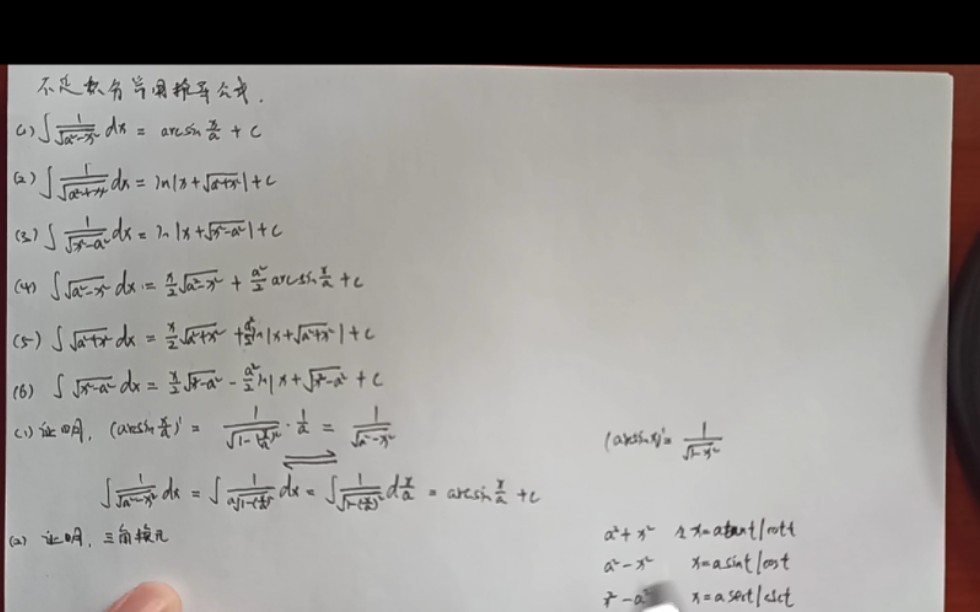 不定积分常用推导公式.
(1) ∫ 1/√(a²-x²) dx = arcsin x/a + C
(2) ∫ 1/√(a²+x²) dx = ln|x+√(a²+x²)|+C
(3) ∫ 1/√(x²-a²) dx = ln|x+√(x²-a²)|+C
(4) ∫ √(a²-x²) dx = x/2 √(a²-x²) + a²/2 arcsin x/a + C
(5) ∫ √(a²+x²) dx = x/2 √(a²+x²) + a²/2 ln|x+√(a²+x²)|+C
(6) ∫ √(x²-a²) dx = x/2 √(x²-a²) - a²/2 ln|x+√(x²-a²)| + C
(1) 证明, (arcsin x/a)' = 1/√(1-(x/a)²) · 1/a = 1/√(a²-x²)
(arcsin x)' = 1/√(1-x²)
⇌
∫ 1/√(a²-x²) dx = ∫ 1/(a√(1-(x/a)²)) dx = ∫ 1/√(1-(x/a)²) d x/a = arcsin x/a + C
(2) 证明, 三角换元
a²+x² 令 x=a tan t/cot t
a²-x² x=a sin t/cos t
x²-a² x=a sec t/csc t